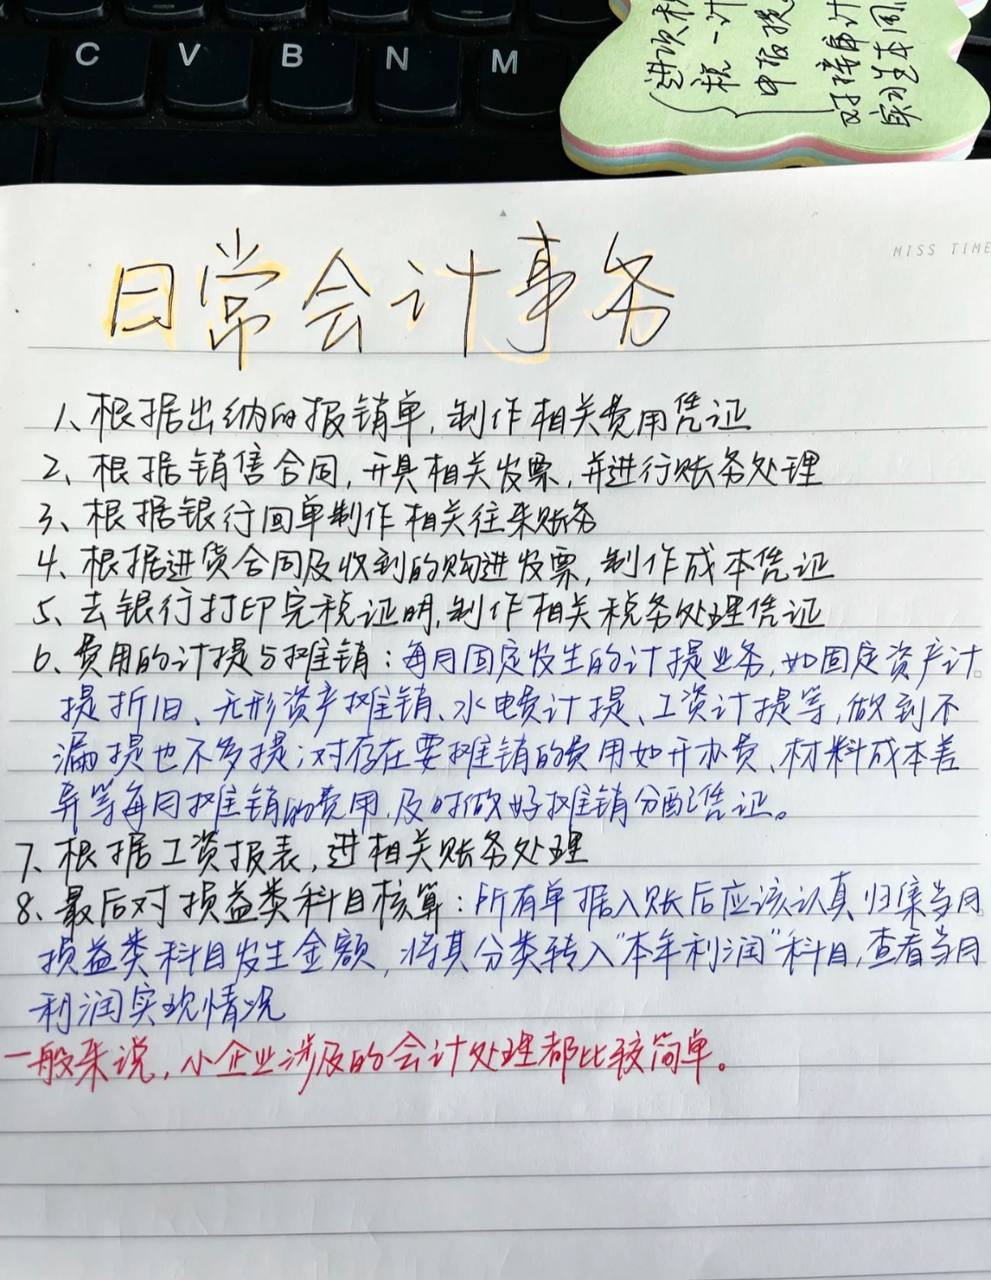 C V B N M
进项税
税一计
申报提
对接审计
MISS TIME
日常会计事务
1、根据出纳的报销单,制作相关费用凭证
2、根据销售合同,开具相关发票,并进行账务处理
3、根据银行回单制作相关往来账务
4、根据进货合同及收到的购进发票,制作成本凭证
5、去银行打印完税证明,制作相关税务处理凭证
6、费用的计提与摊销:每月固定发生的计提业务,如固定资产计
提折旧、无形资产摊销、水电费计提、工资计提等,做到不
漏提也不多提;对存在要摊销的费用如开办费、材料成本差
异等每月摊销的费用,及时做好摊销分配凭证。
7、根据工资报表,进相关账务处理
8、最后对损益类科目核算:所有单据入账后应该认真归集当月
损益类科目发生金额,将其分类转入“本年利润”科目,查看当月
利润实现情况
一般来说,小企业涉及的会计处理都比较简单。